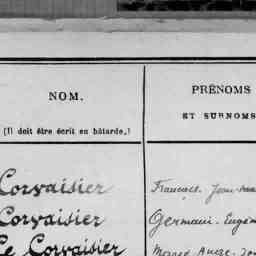 NOM.
(Il doit être écrit en bâtarde.)
PRÉNOMS
ET SURNOMS
Corvaisier
Corvaisier
Le Corvaisier
François. Jean-
Germain. Eugèn